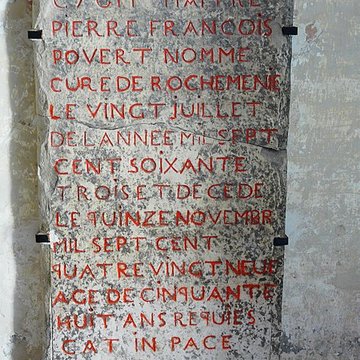 CY GIT MAITRE
PIERRE FRANCOIS
POVERT NOMME
CURE DE ROCHEMENE
LE VINGT JUILLET
DE LANNEE MIL SEPT
CENT SOIXANTE
TROIS ET DECEDE
LE QUINZE NOVEMBR
MIL SEPT CENT
QUATRE VINGT NEUF
AGE DE CINQUANTE
HUIT ANS REQUIES
CAT IN PACE